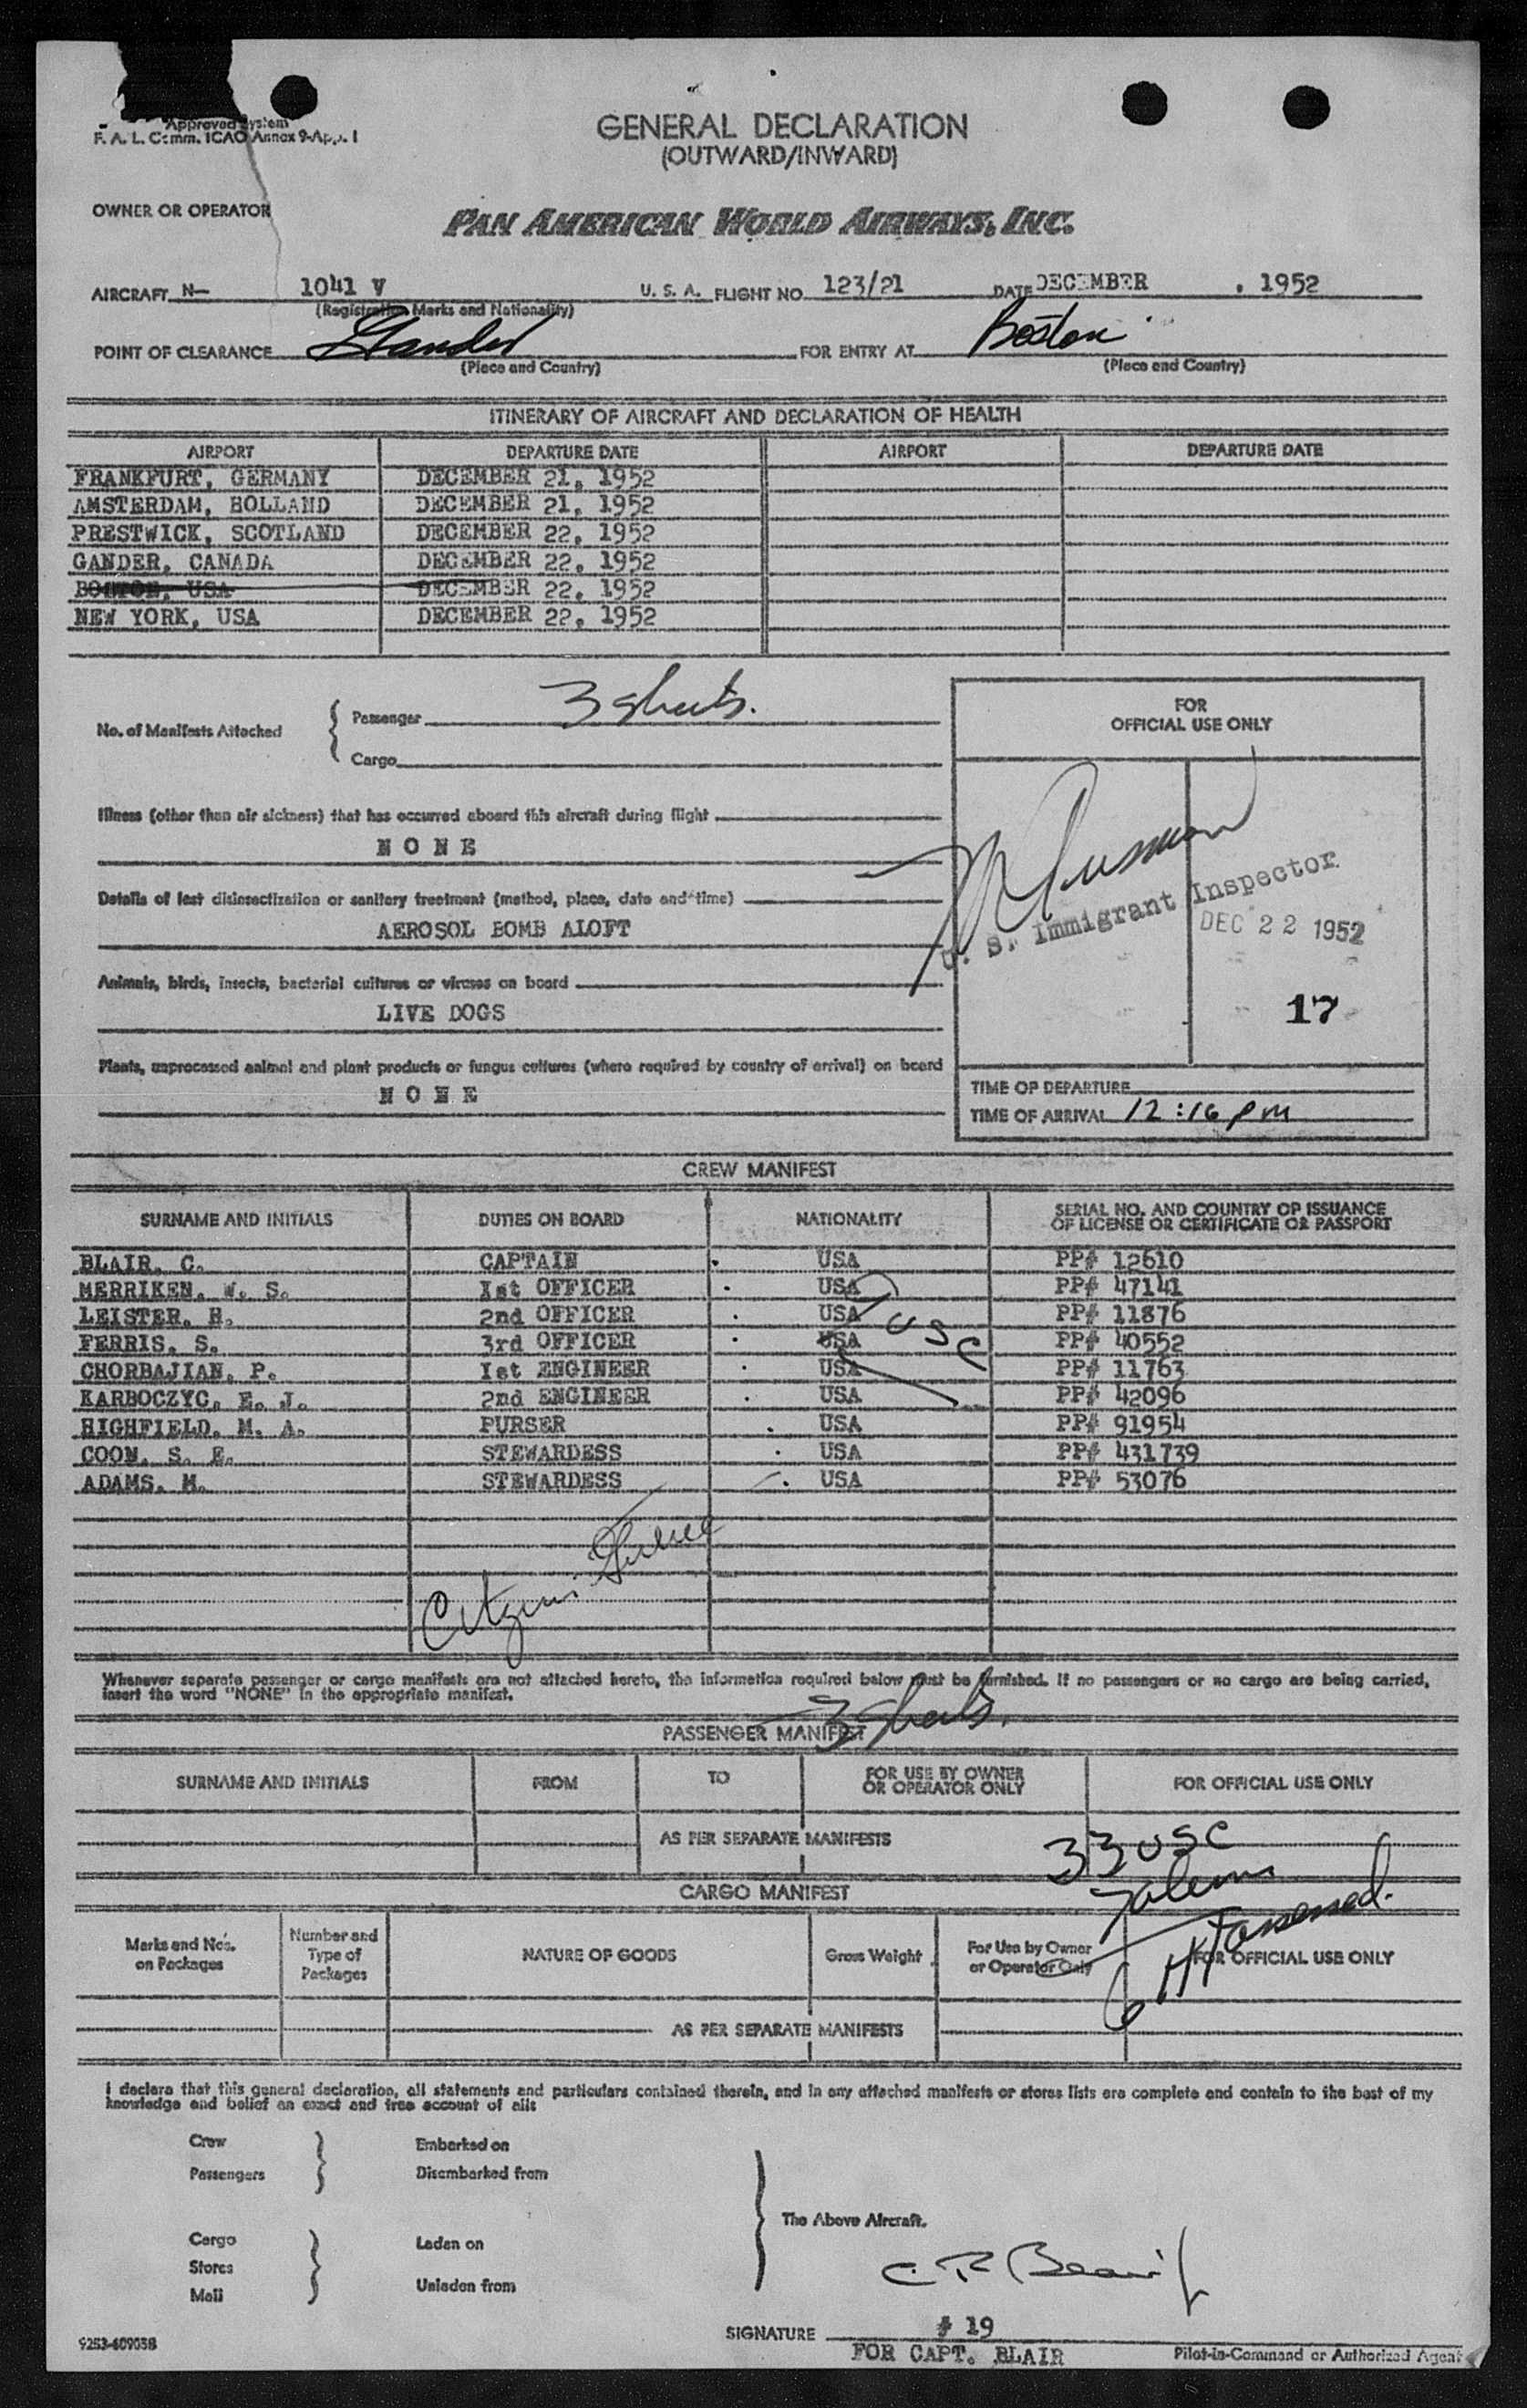 Approved System
F. A. L. Comm. ICAO Annex 9-App. I
GENERAL DECLARATION
(OUTWARD/INWARD)
OWNER OR OPERATOR
PAN AMERICAN WORLD AIRWAYS, INC.
AIRCRAFT N- 1041 V U. S. A. FLIGHT NO. 123/21 DATE DECEMBER , 1952
(Registration Marks and Nationality)
POINT OF CLEARANCE Gander FOR ENTRY AT Boston
(Place and Country) (Place and Country)
ITINERARY OF AIRCRAFT AND DECLARATION OF HEALTH
AIRPORT DEPARTURE DATE AIRPORT DEPARTURE DATE
FRANKFURT, GERMANY DECEMBER 21, 1952
AMSTERDAM, HOLLAND DECEMBER 21, 1952
PRESTWICK, SCOTLAND DECEMBER 22, 1952
GANDER, CANADA DECEMBER 22, 1952
BOSTON, USA DECEMBER 22, 1952
NEW YORK, USA DECEMBER 22, 1952
No. of Manifests Attached
Passenger 3 sheets.
Cargo
FOR
OFFICIAL USE ONLY
Illness (other than air sickness) that has occurred aboard this aircraft during flight
NONE
Details of last disinsectization or sanitary treatment (method, place, date and time)
AEROSOL BOMB ALOFT
Animals, birds, insects, bacterial cultures or viruses on board
LIVE DOGS
Plants, unprocessed animal and plant products or fungus cultures (where required by country of arrival) on board
NONE
U. S. Immigrant Inspector
DEC 22 1952
17
TIME OF DEPARTURE
TIME OF ARRIVAL 12:16 pm
CREW MANIFEST
SURNAME AND INITIALS DUTIES ON BOARD NATIONALITY SERIAL NO. AND COUNTRY OF ISSUANCE
OF LICENSE OR CERTIFICATE OR PASSPORT
BLAIR, C. CAPTAIN USA PP# 12610
MERRIKEN, W. S. 1st OFFICER USA PP# 47141
LEISTER, H. 2nd OFFICER USA PP# 11876
FERRIS, S. 3rd OFFICER USA PP# 40552
CHORBAJIAN, P. 1st ENGINEER USA PP# 11763
KARBOCZYC, E. J. 2nd ENGINEER USA PP# 42096
HIGHFIELD, M. A. PURSER USA PP# 91954
COON, S. E. STEWARDESS USA PP# 431739
ADAMS, M. STEWARDESS USA PP# 53076
USC
Whenever separate passenger or cargo manifests are not attached hereto, the information required below must be furnished. If no passengers or no cargo are being carried,
insert the word "NONE" in the appropriate manifest.
3 sheets.
PASSENGER MANIFEST
SURNAME AND INITIALS FROM TO FOR USE BY OWNER
OR OPERATOR ONLY FOR OFFICIAL USE ONLY
AS PER SEPARATE MANIFESTS
33 USC
CARGO MANIFEST
6 HT assessed.
Marks and Nos.
on Packages
Number and
Type of
Packages
NATURE OF GOODS
Gross Weight
For Use by Owner
or Operator Only
FOR OFFICIAL USE ONLY
AS PER SEPARATE MANIFESTS
I declare that this general declaration, all statements and particulars contained therein, and in any attached manifests or stores lists are complete and contain to the best of my
knowledge and belief an exact and true account of all:
Crew
Passengers
Embarked on
Disembarked from
The Above Aircraft.
Cargo
Stores
Mail
Laden on
Unladen from
SIGNATURE # 19
FOR CAPT. BLAIR
Pilot-in-Command or Authorized Agent
9253-609038